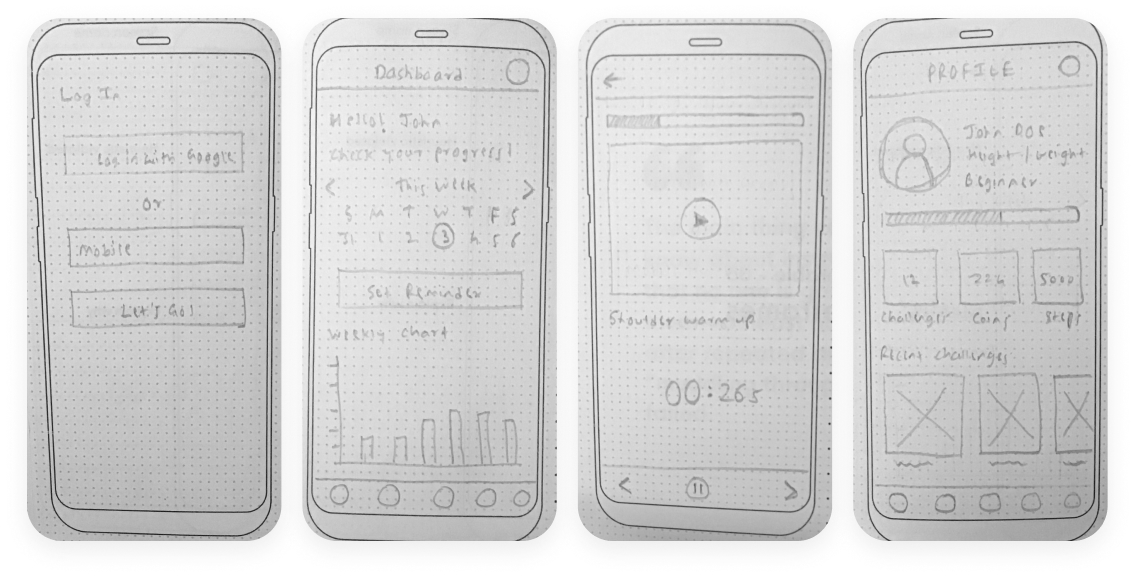 Log In
Log in with Google
Or
Mobile
Let's Go!
Dashboard
Hello! John
Check your progress!
< This week >
S M T W T F S
31 1 2 3 4 5 6
Set Reminder
Weekly chart
Shoulder warm up
00:26s
PROFILE
John Doe
Height / weight
Beginner
12 224 5000
Challenges Coins Steps
Recent challenges